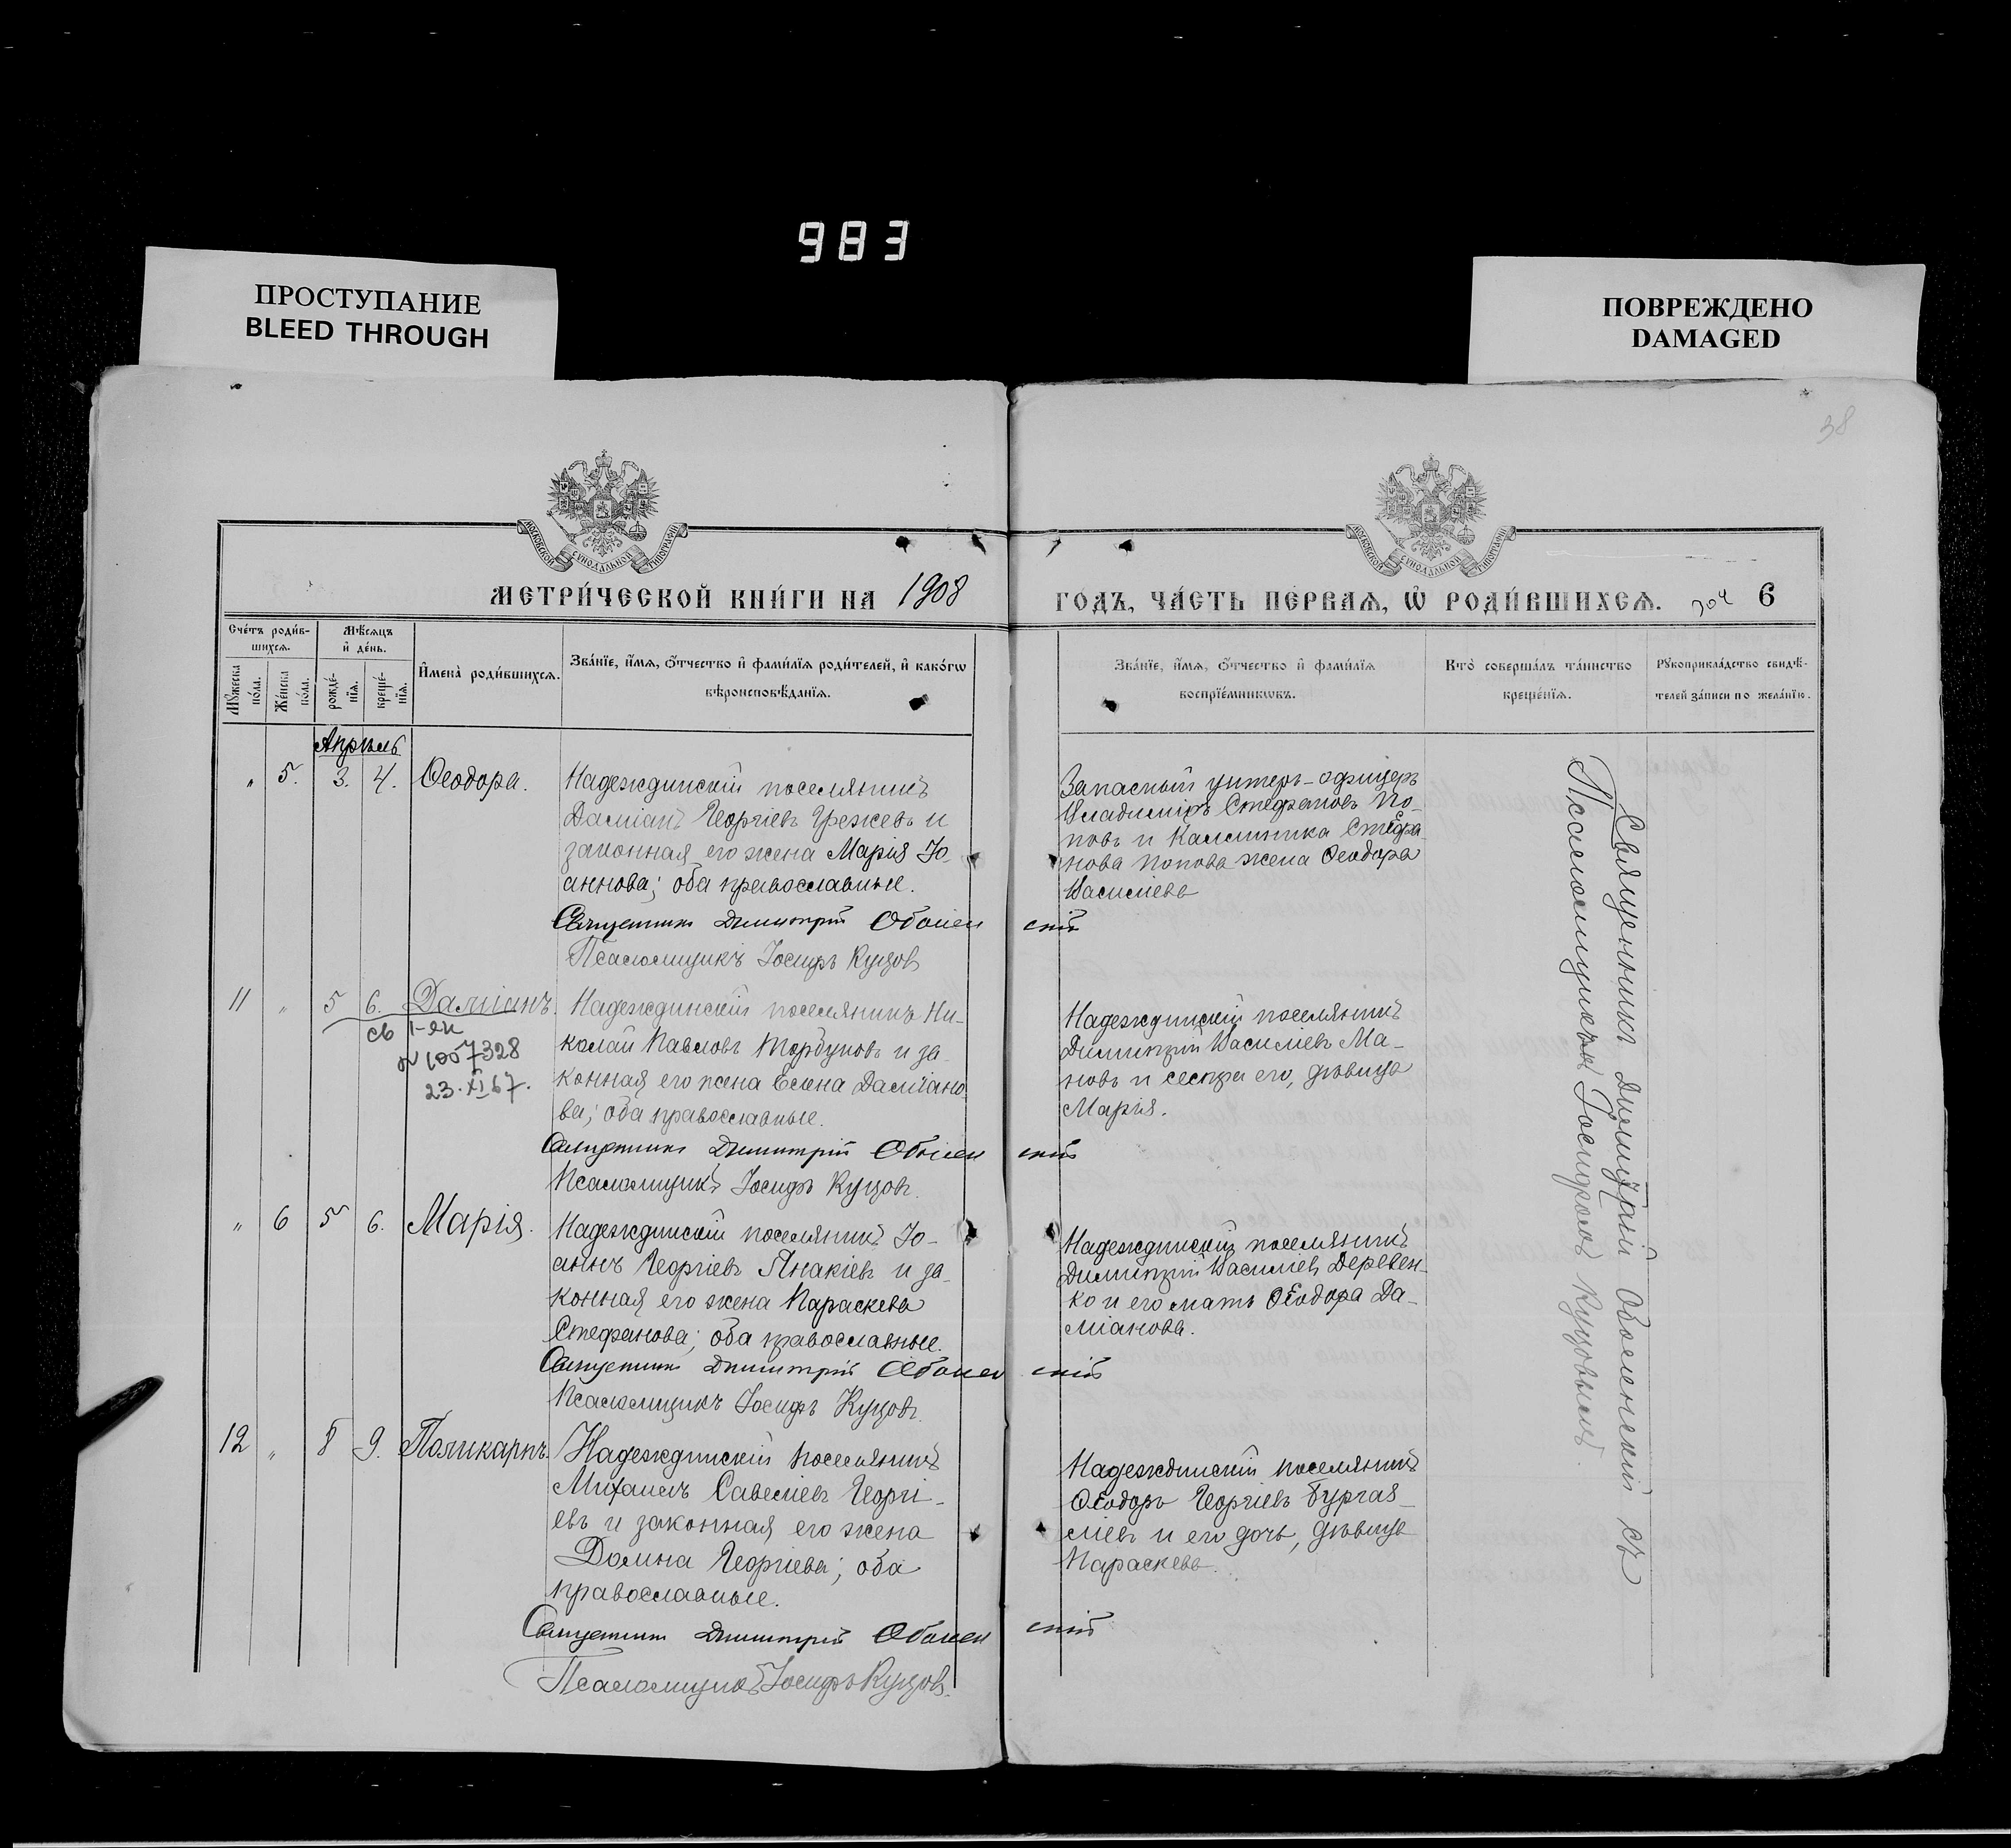 983
ПРОСТУПАНИЕ
BLEED THROUGH
ПОВРЕЖДЕНО
DAMAGED
38
МОСКОВСКОЙ СУНОДАЛЬНОЙ ТИПОГРАФІИ
МОСКОВСКОЙ СУНОДАЛЬНОЙ ТИПОГРАФІИ
МЕТРИ́ЧЕСКОЙ КНИ́ГИ НА 1908
ГОДЪ, ЧА́СТЬ ПЕ́РВАЯ, Ѡ РОДИ́ВШИХСЯ. 6
Сче́тъ роди́в-
шихся.
Мѣ́сяцъ
и҆ де́нь.
Мꙋ́жеска
по́ла.
Же́нска
по́ла.
рожде́-
нїя.
креще́-
нїя.
И҆мена̀ роди́вшихся.
Зва́нїе, и҆́мя, ѻ҆́тчество и҆ фами́лїя роди́телей, и҆ како́гѡ
вѣроисповѣ́данїя.
Зва́нїе, и҆́мя, ѻ҆́тчество и҆ фами́лїя
воспрїе́мникѡвъ.
Кто̀ соверша́лъ та́инство
креще́нїя.
Рꙋкоприкла́дство свидѣ́-
телей за́писи по жела́нїю.
Апрѣль
" 5. 3. 4. Ѳеодора.
Надеждинскій поселянинъ
Даміанъ Георгіевъ Грежевъ и
законная его жена Марія Іо-
аннова; оба православные.
Священникъ Димитрій Оболенскій
Псаломщикъ Іосифъ Куцовъ
Запасный унтеръ-офицеръ
Владиміръ Стефановъ По-
повъ и Калинника Стефа-
нова Попова жена Ѳеодора
Василіева
11 " 5 6. Даміанъ.
св I-ЯИ
№ 1007328
23.XI 67.
Надеждинскій поселянинъ Ни-
колай Павловъ Торбуновъ и за-
конная его жена Елена Даміано-
ва; оба православные.
Священникъ Димитрій Оболенскій
Псаломщикъ Іосифъ Куцовъ.
Надеждинскій поселянинъ
Димитрій Василіевъ Ма-
новъ и сестра его, дѣвица
Марія.
" 6 5 6. Марія.
Надеждинскій поселянинъ Іо-
аннъ Георгіевъ Янакіевъ и за-
конная его жена Параскева
Стефанова; оба православные.
Священникъ Димитрій Оболенскій
Псаломщикъ Іосифъ Куцовъ.
Надеждинскій поселянинъ
Димитрій Василіевъ Деревен-
ко и его мать Ѳеодора Да-
міанова.
12 " 8 9. Поликарпъ.
Надеждинскій поселянинъ
Михаилъ Савеліевъ Георгі-
евъ и законная его жена
Домна Георгіева; оба
православные.
Священникъ Димитрій Оболенскій
Псаломщикъ Іосифъ Куцовъ.
Надеждинскій поселянинъ
Ѳеодоръ Георгіевъ Бургаз-
ліевъ и его дочь, дѣвица
Параскева.
Священникъ Димитрій Оболенскій съ
Псаломщикомъ Іосифомъ Куцовымъ.